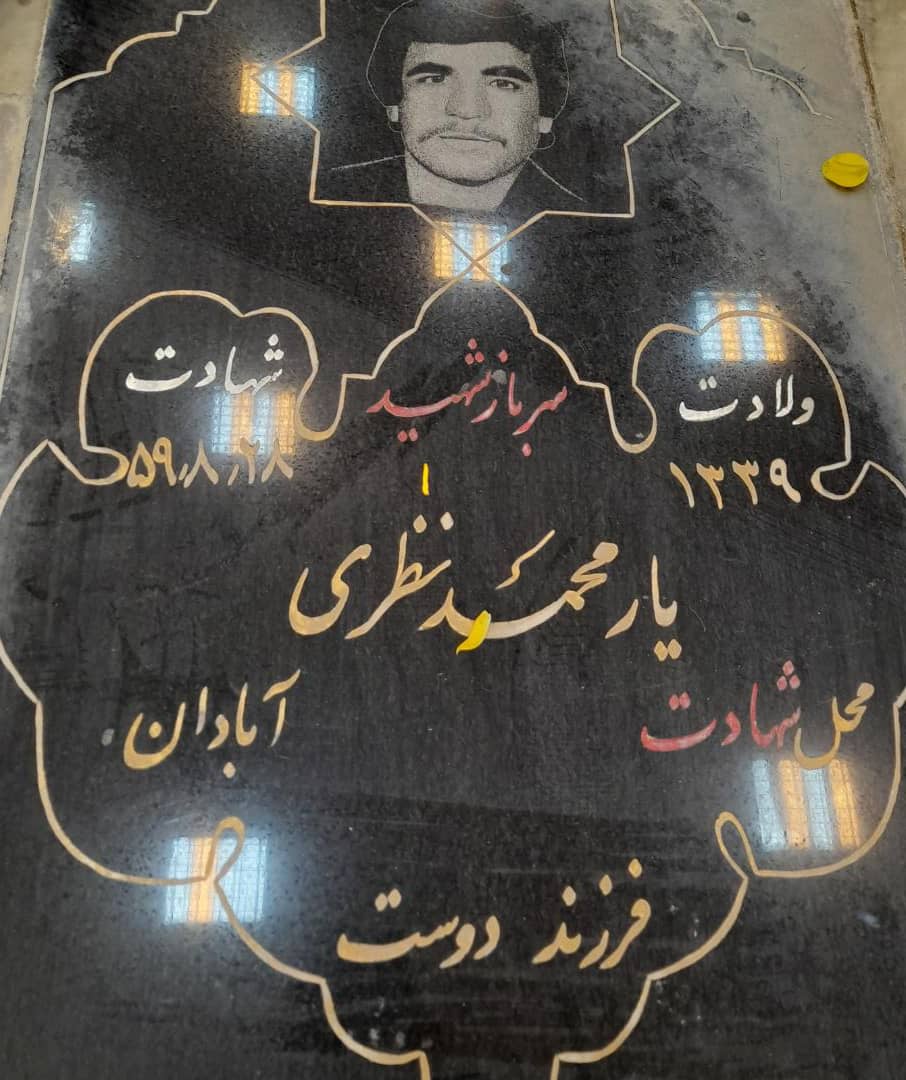 ولادت
۱۳۳۹
سرباز شهید
شهادت
۵۹٫۸٫۲۸
یار محمد نظری
محل شهادت
آبادان
فرزند دوست